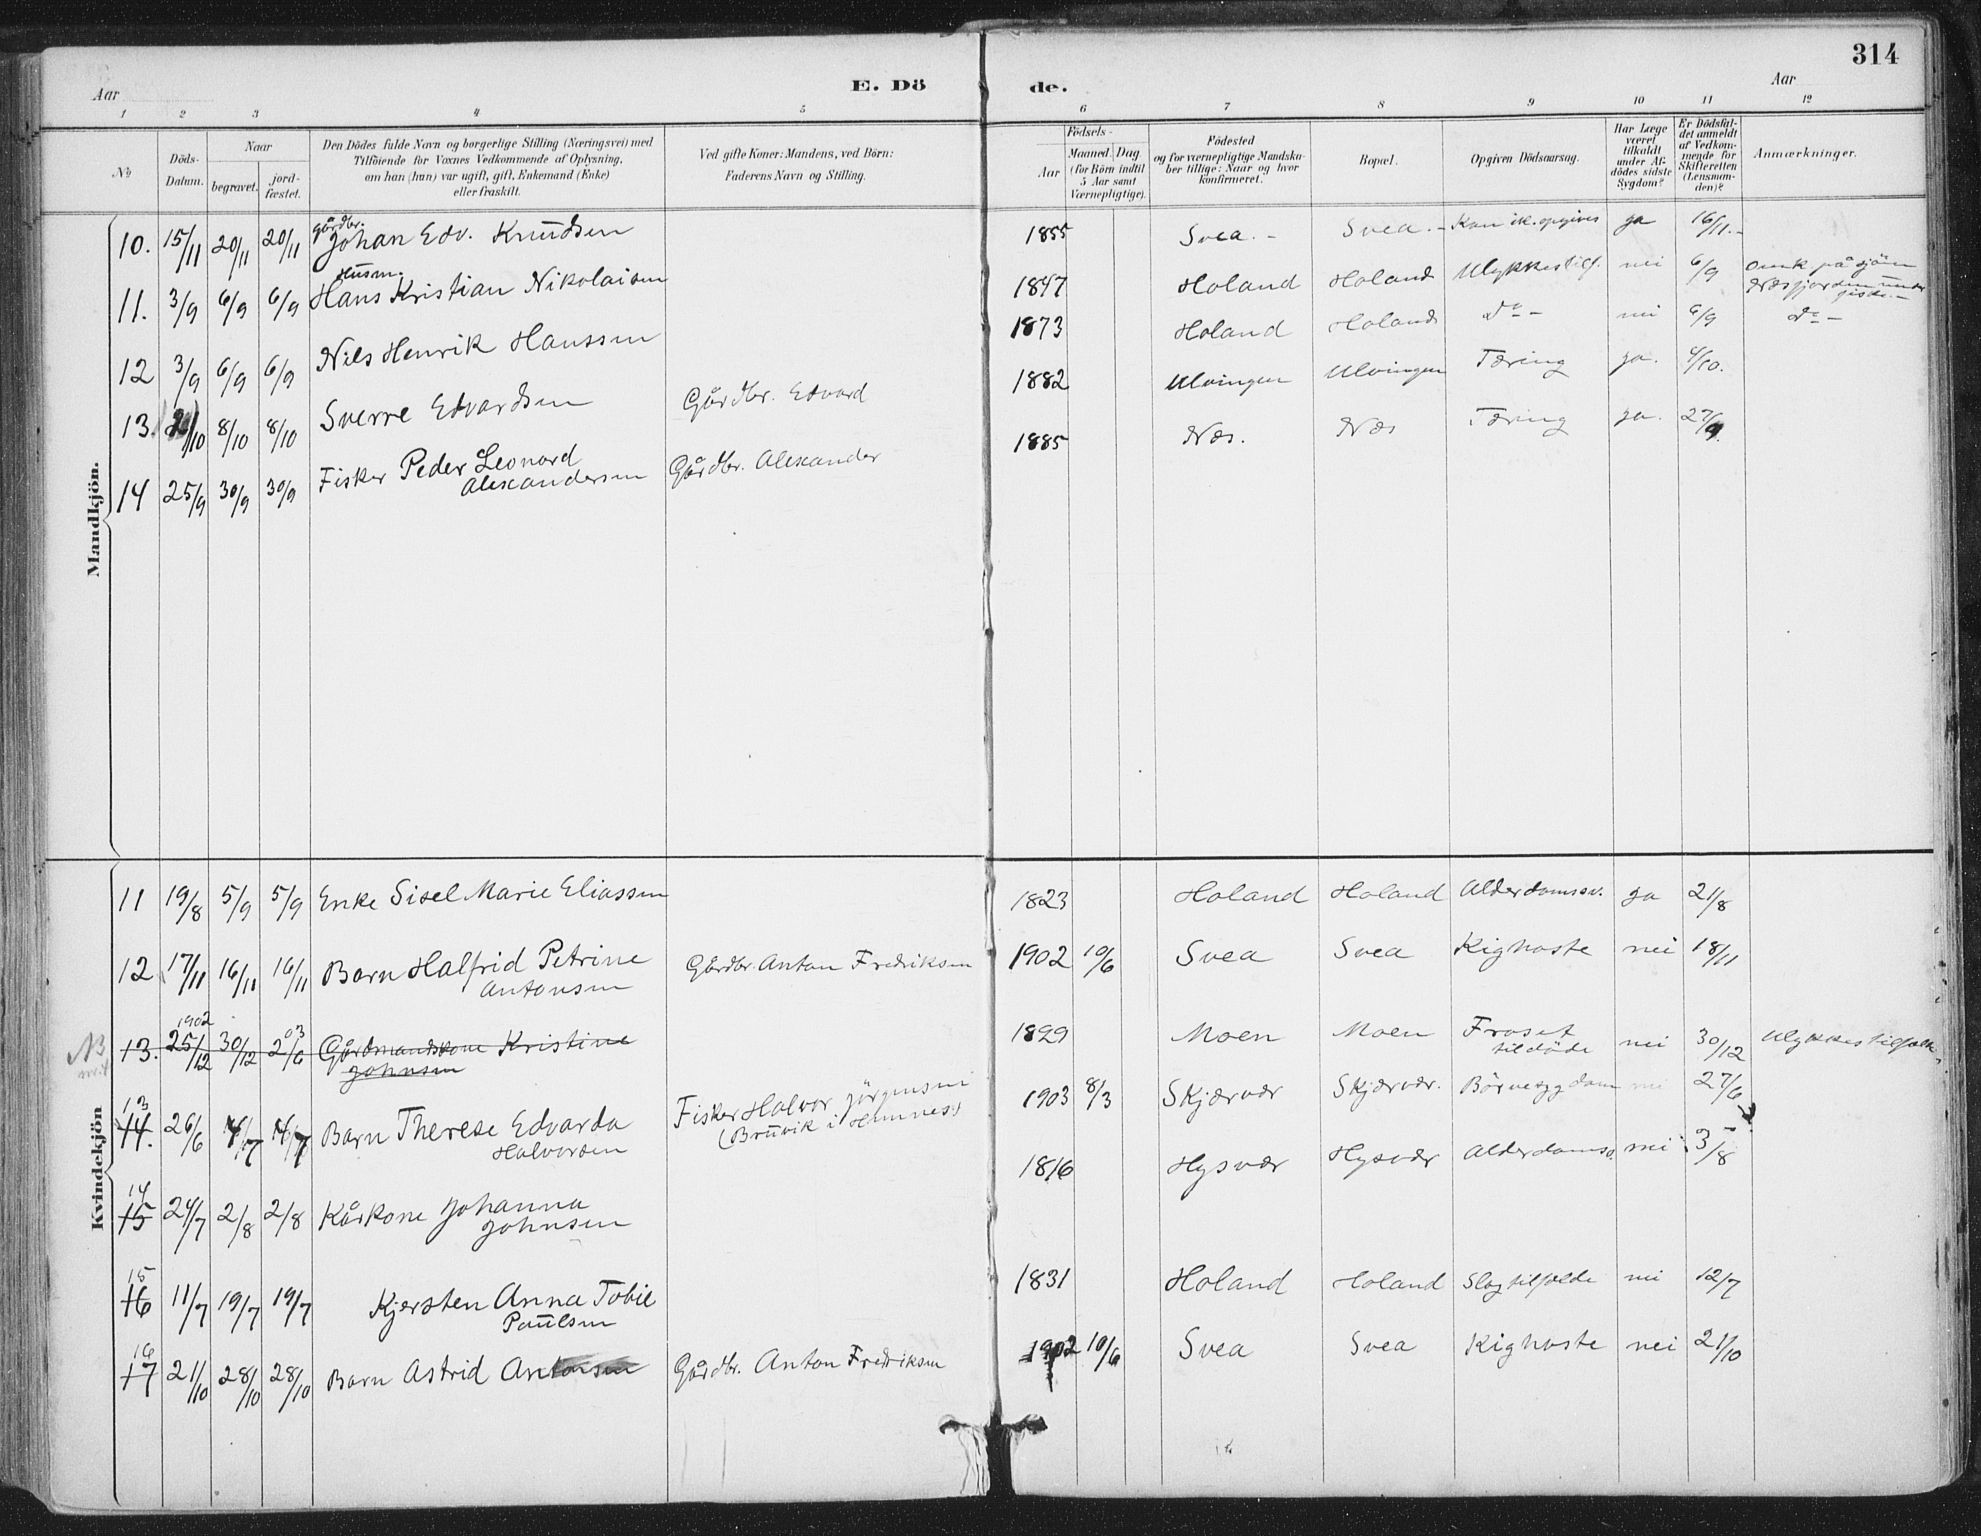 314
Aar
E. Dö
de.
Aar
1 2 3 4 5 6 7 8 9 10 11 12
No
Döds-Datum.
Naar
begravet.
jord-fæstet.
Den Dödes fulde Navn og borgerlige Stilling (Næringsvei) med
Tilföiende for Voxnes Vedkommende af Oplysning,
om han (hun) var ugift, gift, Enkemand (Enke)
eller fraskilt.
Ved gifte Koner: Mandens, ved Börn:
Faderens Navn og Stilling.
Födsels-
Aar
Maaned. Dag
(for Börn indtil
5 Aar samt
Værnepligtige).
Födested
og for værnepligtige Mandska-
ber tillige: Naar og hvor
konfirmeret.
Bopæl.
Opgiven Dödsaarsag.
Har Læge
været
tilkaldt
under Af-
dödes sidste
Sygdom?
Er Dödsfal-
det anmeldt
af Vedkom-
mende for
Skifteretten
(Lensman-
den)?
Anmærkninger.
Mandkjön.
10. 15/11 20/11 20/11 Gårdbr. Johan Edv. Knudsen 1855 Svea.- Svea.- Kan ik. opgives ja 16/11.-
11. 3/9 6/9 6/9 Husm. Hans Kristian Nikolaisen 1847 Holand Holand Ulykkestilf. nei 6/9 Omk på sjöen
12 3/9 6/9 6/9 Nils Henrik Hanssen 1873 Holand Holand Do - nei 6/9 Do -
13. 2/10 8/10 8/10 Sverre Edvardsen Gårdbr. Edvard 1882 Ulvingen Ulvingen Tæring ja. 4/10.
14 25/9 30/9 30/9 Fisker Peder Leonard
Alexandersen Gårdbr. Alexander 1885 Næs. Næs Tæring ja. 27/9.
Kvindekjön
11 19/8 5/9 5/9 Enke Sisel Marie Eliassen 1823 Holand Holand Alderdomssv. ja 21/8
12 17/11 16/11 16/11 Barn Halfrid Petrine
Antonsen Gårdbr. Anton Fredriksen 1902 10/6 Svea Svea Kighoste nei 18/11
NB
13. 1902 25/12 30/12 03 2/6 Gårdmandskone Kristine
Johnsen 1899 Moen Moen Froset
tildöde nei 30/12 Ulykkestilfælde
13
14. 26/6 4/7 4/7 Barn Therese Edvarda
Halvorsen Fisker Halvor Jörgensen
(Bruvik i Hemnes) 1903 8/3 Skjærvær Skjærvær. Börnesygdom nei 27/6
14
15 24/7 2/8 2/8 Kårkone Johanna
Johnsen 1816 Hysvær Hysvær Alderdomssv. nei 3/8
15
16 11/7 19/7 19/7 Kjersten Anna Tobie
Paulsen 1831 Holand Holand Slagtilfælde nei 12/7
16
17 21/10 28/10 28/10 Barn Astrid Antonsen Gårdbr. Anton Fredriksen 1902 10/6 Svea Svea Kighoste nei 21/10